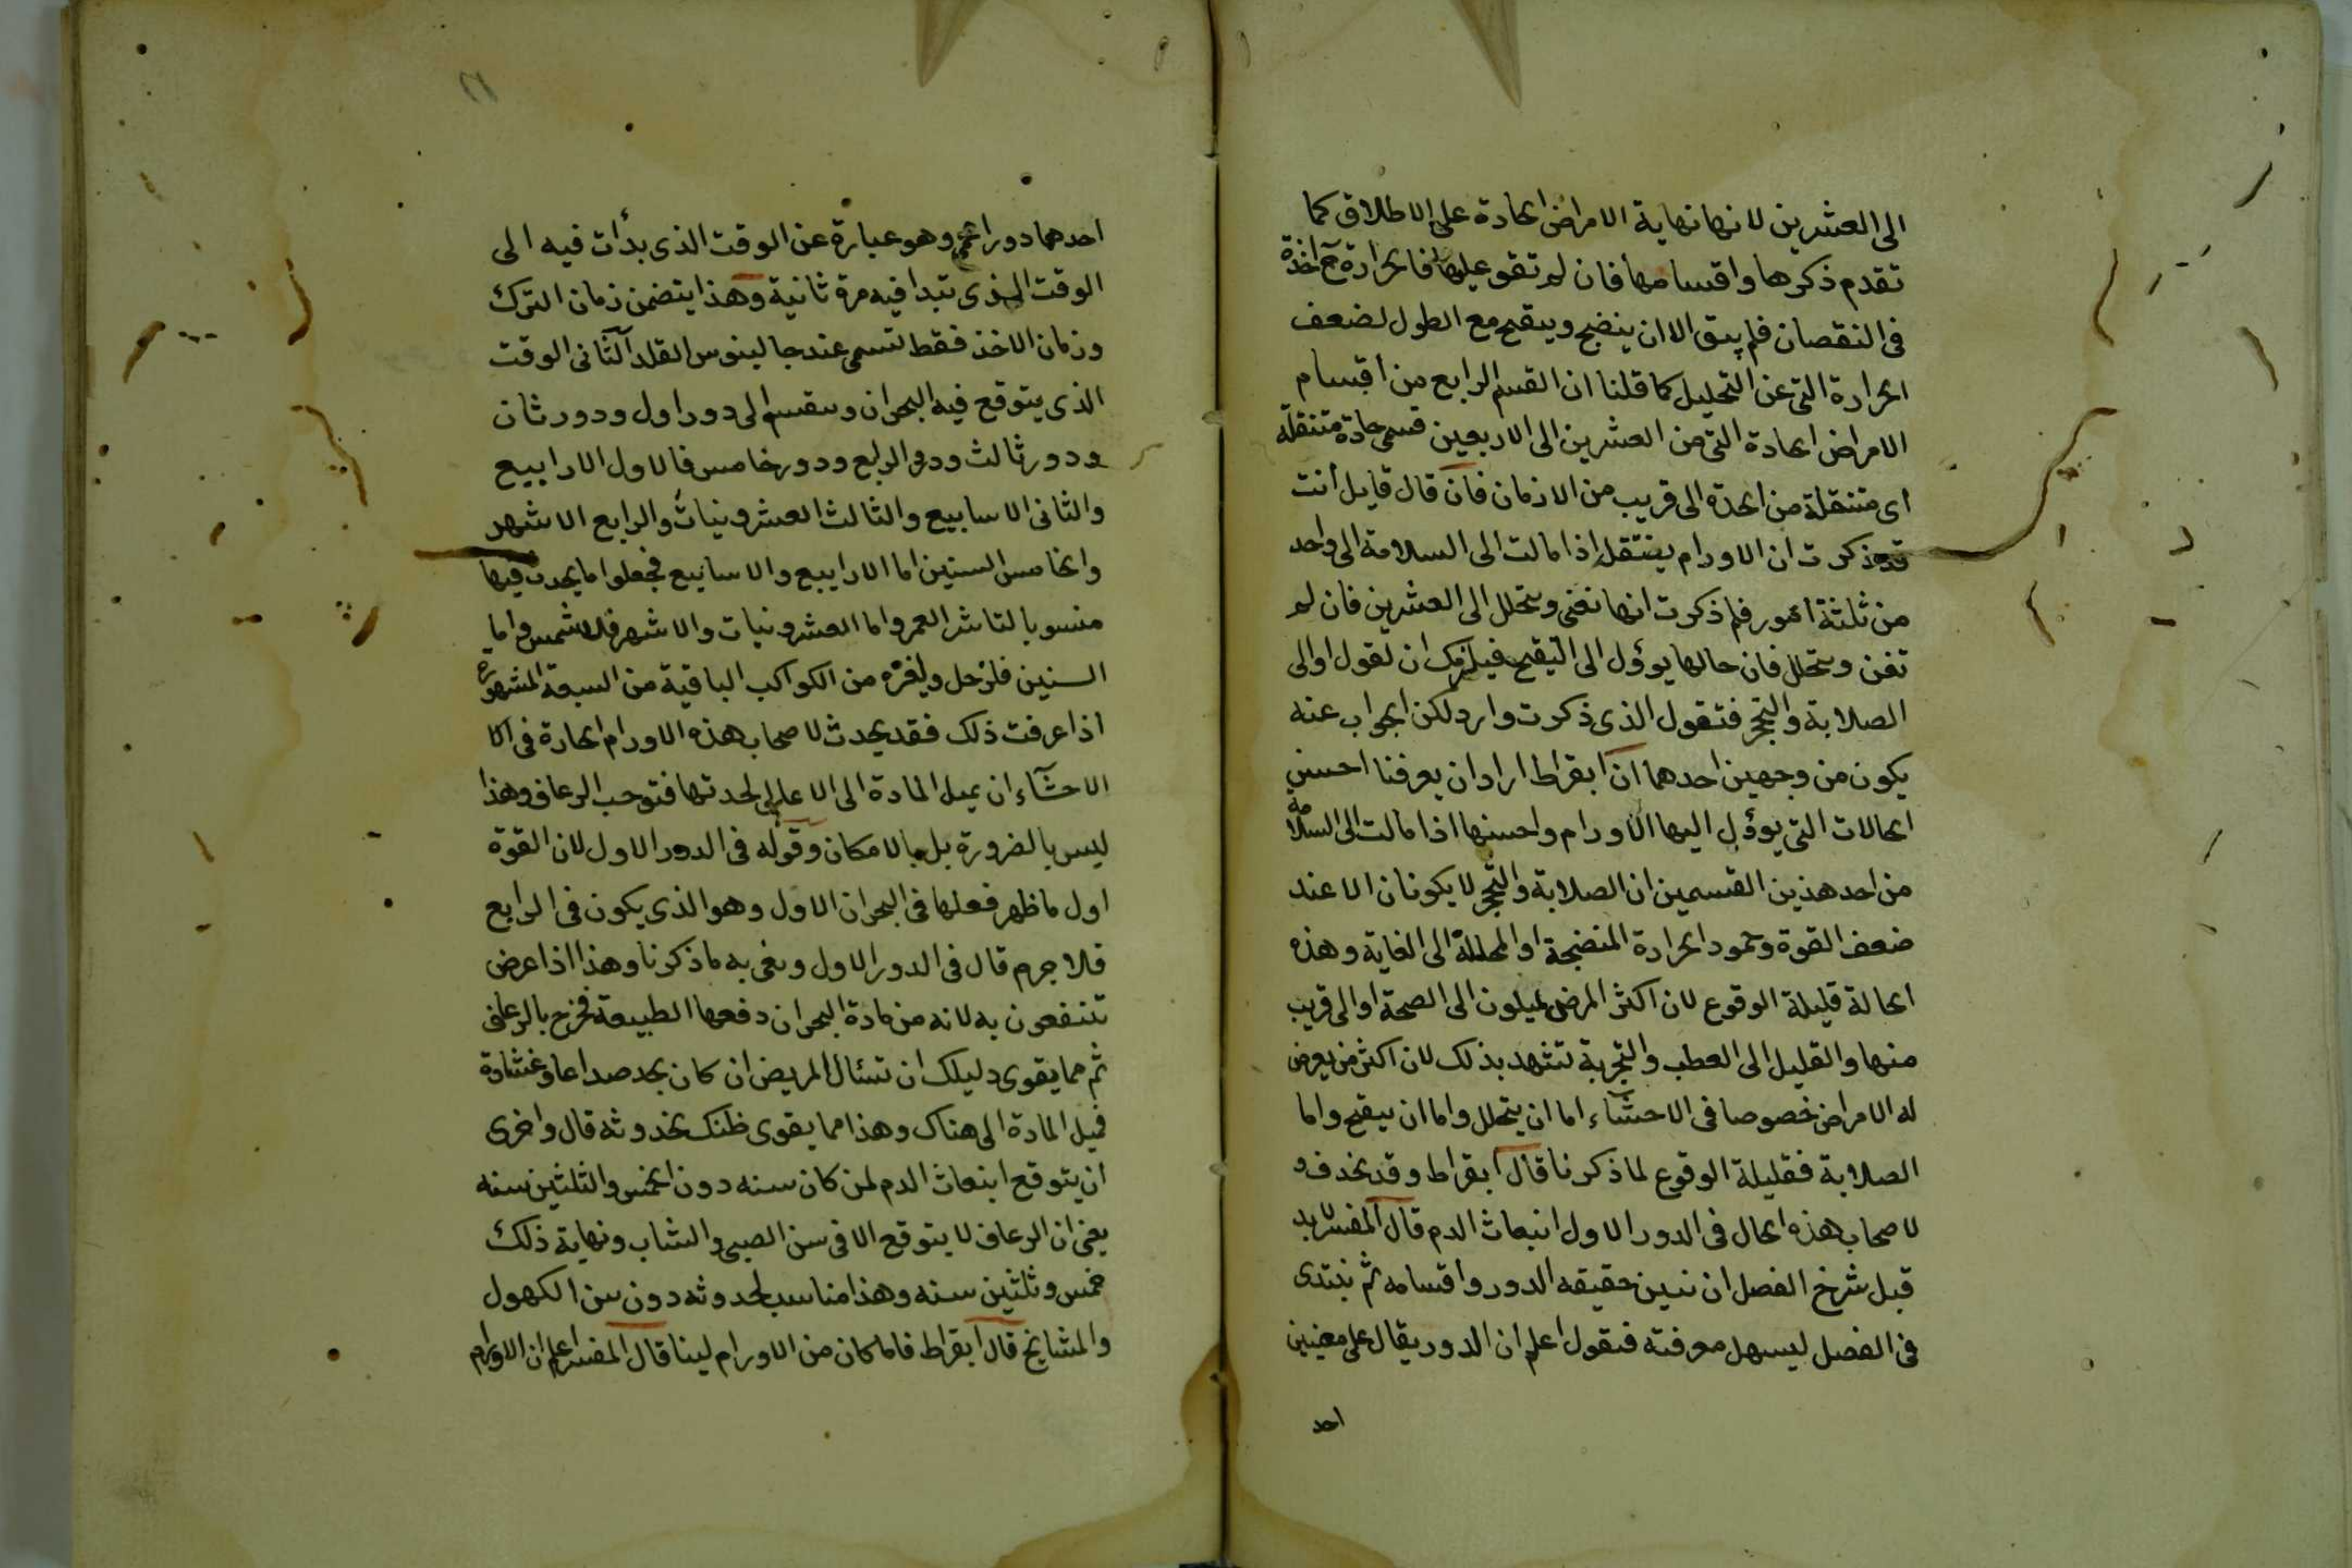 الى العشرين لانها نهاية الامراض الحادة على الاطلاق كما
تقدم ذكرها واقسامها فان لم تقو عليها فالحرارة ح اخذة
فى النقصان فلم يبق الا ان ينضج ويتقيح مع الطول لضعف
الحرارة التى عن التحليل كما قلنا ان القسم الرابع من اقسام
الامراض الحادة التى من العشرين الى الاربعين فسمى حادة متنقلة
اى متنقلة من الحدة الى قريب من الازمان فان قال قايل أنت
قد ذكرت ان الاورام ينتقل اذا مالت الى السلامة الى واحد
من ثلثة امور فلم ذكرت انها تفنى وتتحلل الى العشرين فان لم
تفن وتتحلل فان حالها يوؤل الى التقيح فيلزمك ان تقول او الى
الصلابة والتحجر فتقول الذى ذكرت وارد لكن الجواب عنه
يكون من وجهين احدهما ان ابقراط اراد ان يعرفنا احسن
الحالات التى يوؤل اليها الاورام واحسنها اذا مالت الى السلامة
من احد هذين القسمين ان الصلابة والتحجر لا يكونان الا عند
ضعف القوة وخمود الحرارة المنضجة او المحللة الى الغاية وهذه
الحالة قليلة الوقوع لان اكثر المرضى يميلون الى الصحة او الى قريب
منها والقليل الى العطب والتجربة تشهد بذلك لان اكثر من يعرض
له الامراض خصوصا فى الاحشآء اما ان يتحلل واما ان يتقيح واما
الصلابة فقليلة الوقوع لما ذكرنا قال ابقراط وقد يحدث
لاصحاب هذه الحال فى الدور الاول انبعاث الدم قال المفسر لابد
قبل شرح الفصل ان نبين حقيقه الدور واقسامه ثم نبتدى
فى الفصل ليسهل معرفته فنقول اعلم ان الدور يقال على معنيين
احد
احدهما دور الحمى وهو عبارة عن الوقت الذى بدأت فيه الى
الوقت الذى تبدا فيه مرة ثانية وهذا يتضمن زمان الترك
وزمان الاخذ فقط تسمى عند جالينوس القلد الثانى الوقت
الذى يتوقع فيه البحران وينقسم الى دور اول ودور ثان
ودور ثالث ودور الرابع ودور خامس فالاول الارابيع
والثانى الاسابيع والثالث العشرونيات والرابع الاشهر
والخامس السنين اما الارابيع والاسابيع فجعلوا ما يحدث فيها
منسوبا لتاثر القمر واما العشرونيات والاشهر فللشمس واما
السنين فلزحل ولغيره من الكواكب الباقية من السبعة المشهورة
اذا عرفت ذلك فقد يحدث لاصحاب هذه الاورام الحارة فى الا
الاحشآء ان يميل المادة الى الاعالى لحدتها فتوجب الرعاف وهذا
ليس بالضرورة بل بالامكان وقوله فى الدور الاول لان القوة
اول ما ظهر فعلها فى البحران الاول وهو الذى يكون فى الرابع
فلا جرم قال فى الدور الاول وعنى به ما ذكرنا وهذا اذا عرض
تنتفعون به لانه من مادة البحران دفعها الطبيعة فخرج بالرعاف
ثم مما يقوى دليلك ان تسئال المريض ان كان يجد صداعا وغشاوة
فيميل المادة الى هناك وهذا مما يقوى ظنك بحدوثه قال واحرى
ان يتوقع ابنعاث الدم لمن كان سنه دون الخمس والثلثين سنه
يعنى ان الرعاف لا يتوقع الا فى سن الصبى والشاب ونهاية ذلك
خمس وثلثين سنه وهذا مناسب لحدوثه دون سن الكهول
والمشايخ قال ابقراط فاما كان من الاورام لينا قال المفسر اعلم ان الاورام